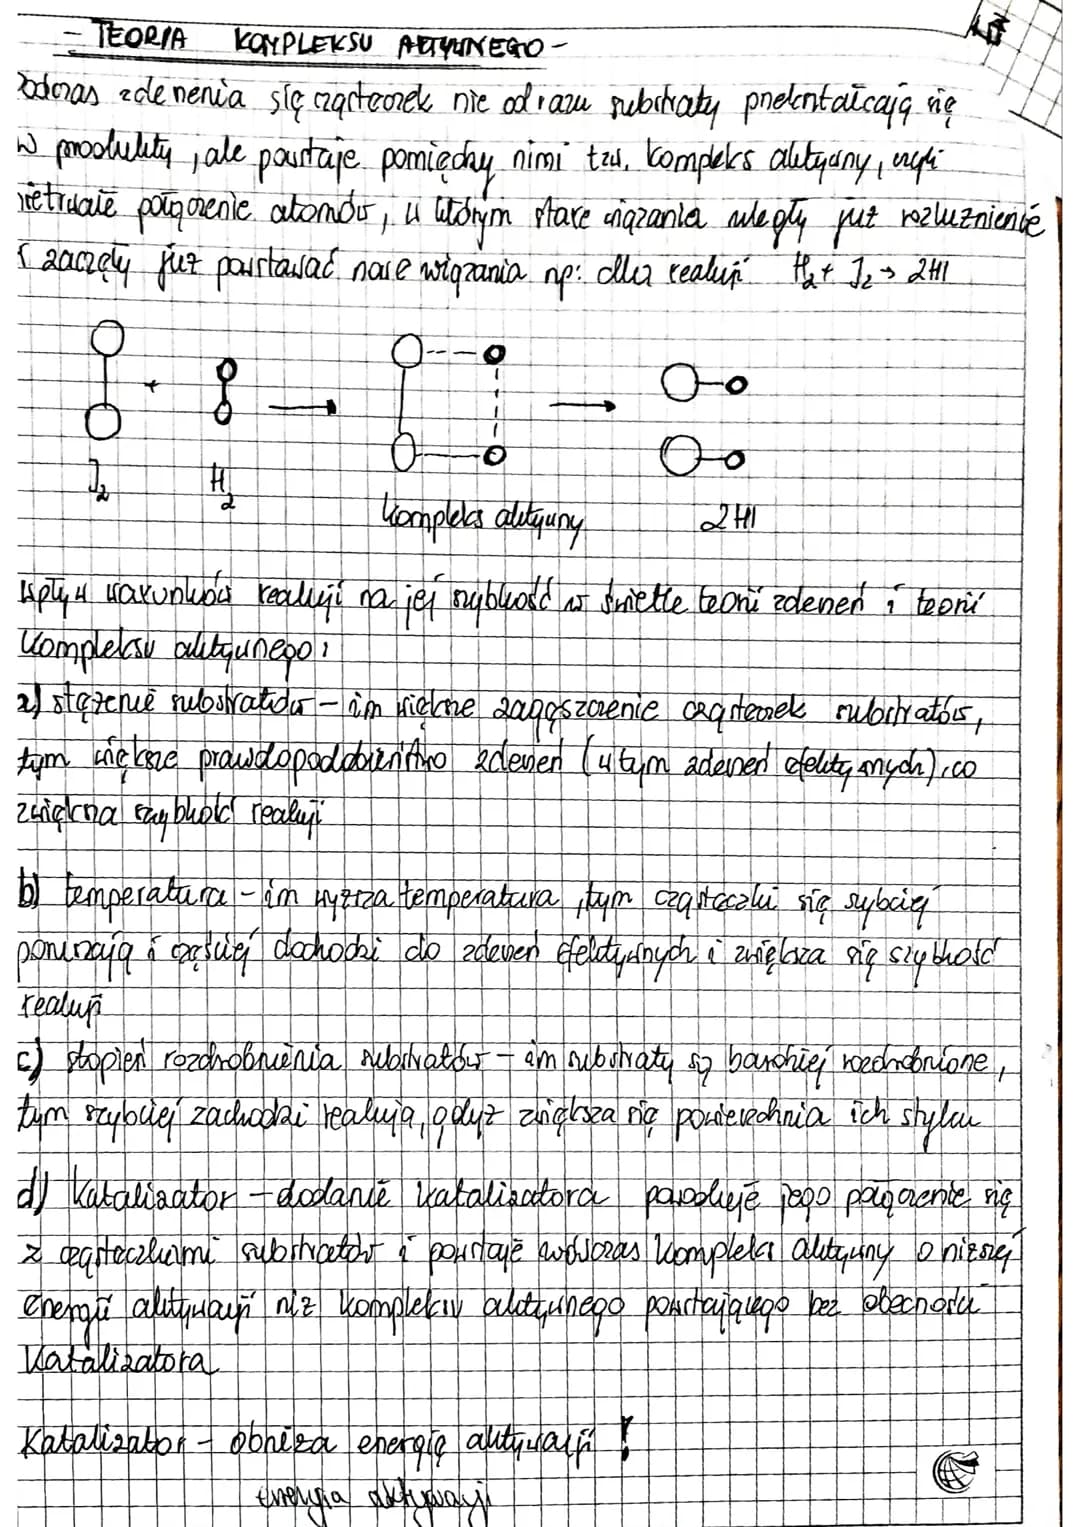 - TEORIA KOMPLEKSU AKTYWNEGO -
Podczas zderzenia się cząsteczek nie od razu substraty przekształcają się
w produkty, ale powstaje pomiędzy nimi tzw. kompleks aktywny, czyli
nietrwałe połączenie atomów, w którym stare wiązania uległy już rozluźnienie
i zaczęły już powstawać nowe wiązania np: dla reakcji H₂ + J₂ → 2HI
+
J₂ H₂ kompleks aktywny 2HI
Wpływ warunków reakcji na jej szybkość w świetle teorii zderzeń i teorii
kompleksu aktywnego:
a) stężenie substratów - im większe zagęszczenie cząsteczek substratów,
tym większe prawdopodobieństwo zderzeń (w tym zderzeń efektywnych), co
zwiększa szybkość reakcji
b) temperatura - im wyższa temperatura, tym cząsteczki się szybciej
poruszają i częściej dochodzi do zderzeń efektywnych i zwiększa się szybkość
reakcji
c) stopień rozdrobnienia substratów - im substraty są bardziej rozdrobnione,
tym szybciej zachodzi reakcja, gdyż zwiększa się powierzchnia ich styku
d) katalizator - dodanie katalizatora powoduje jego połączenie się
z cząsteczkami substratów i powstaje wówczas kompleks aktywny o niższej
energii aktywacji niż kompleksu aktywnego powstającego bez obecności
katalizatora
Katalizator - obniża energię aktywacji !
energia aktywacji